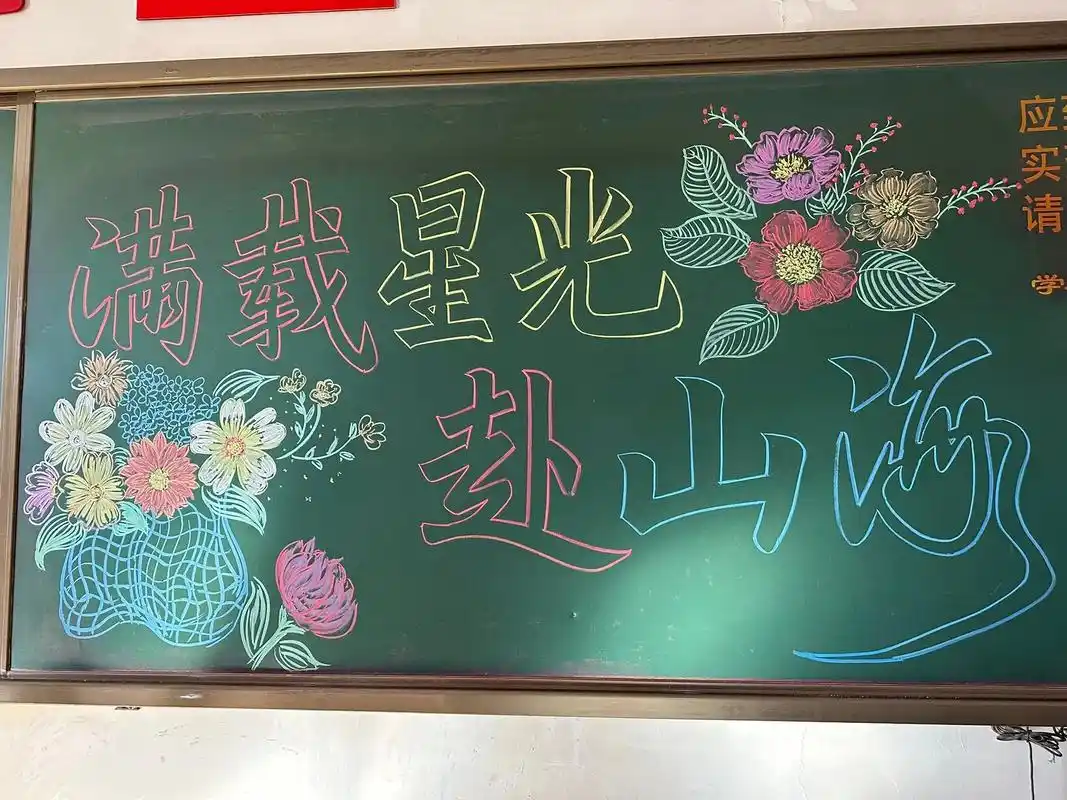 满载星光
赴山海
应到
实
请
学